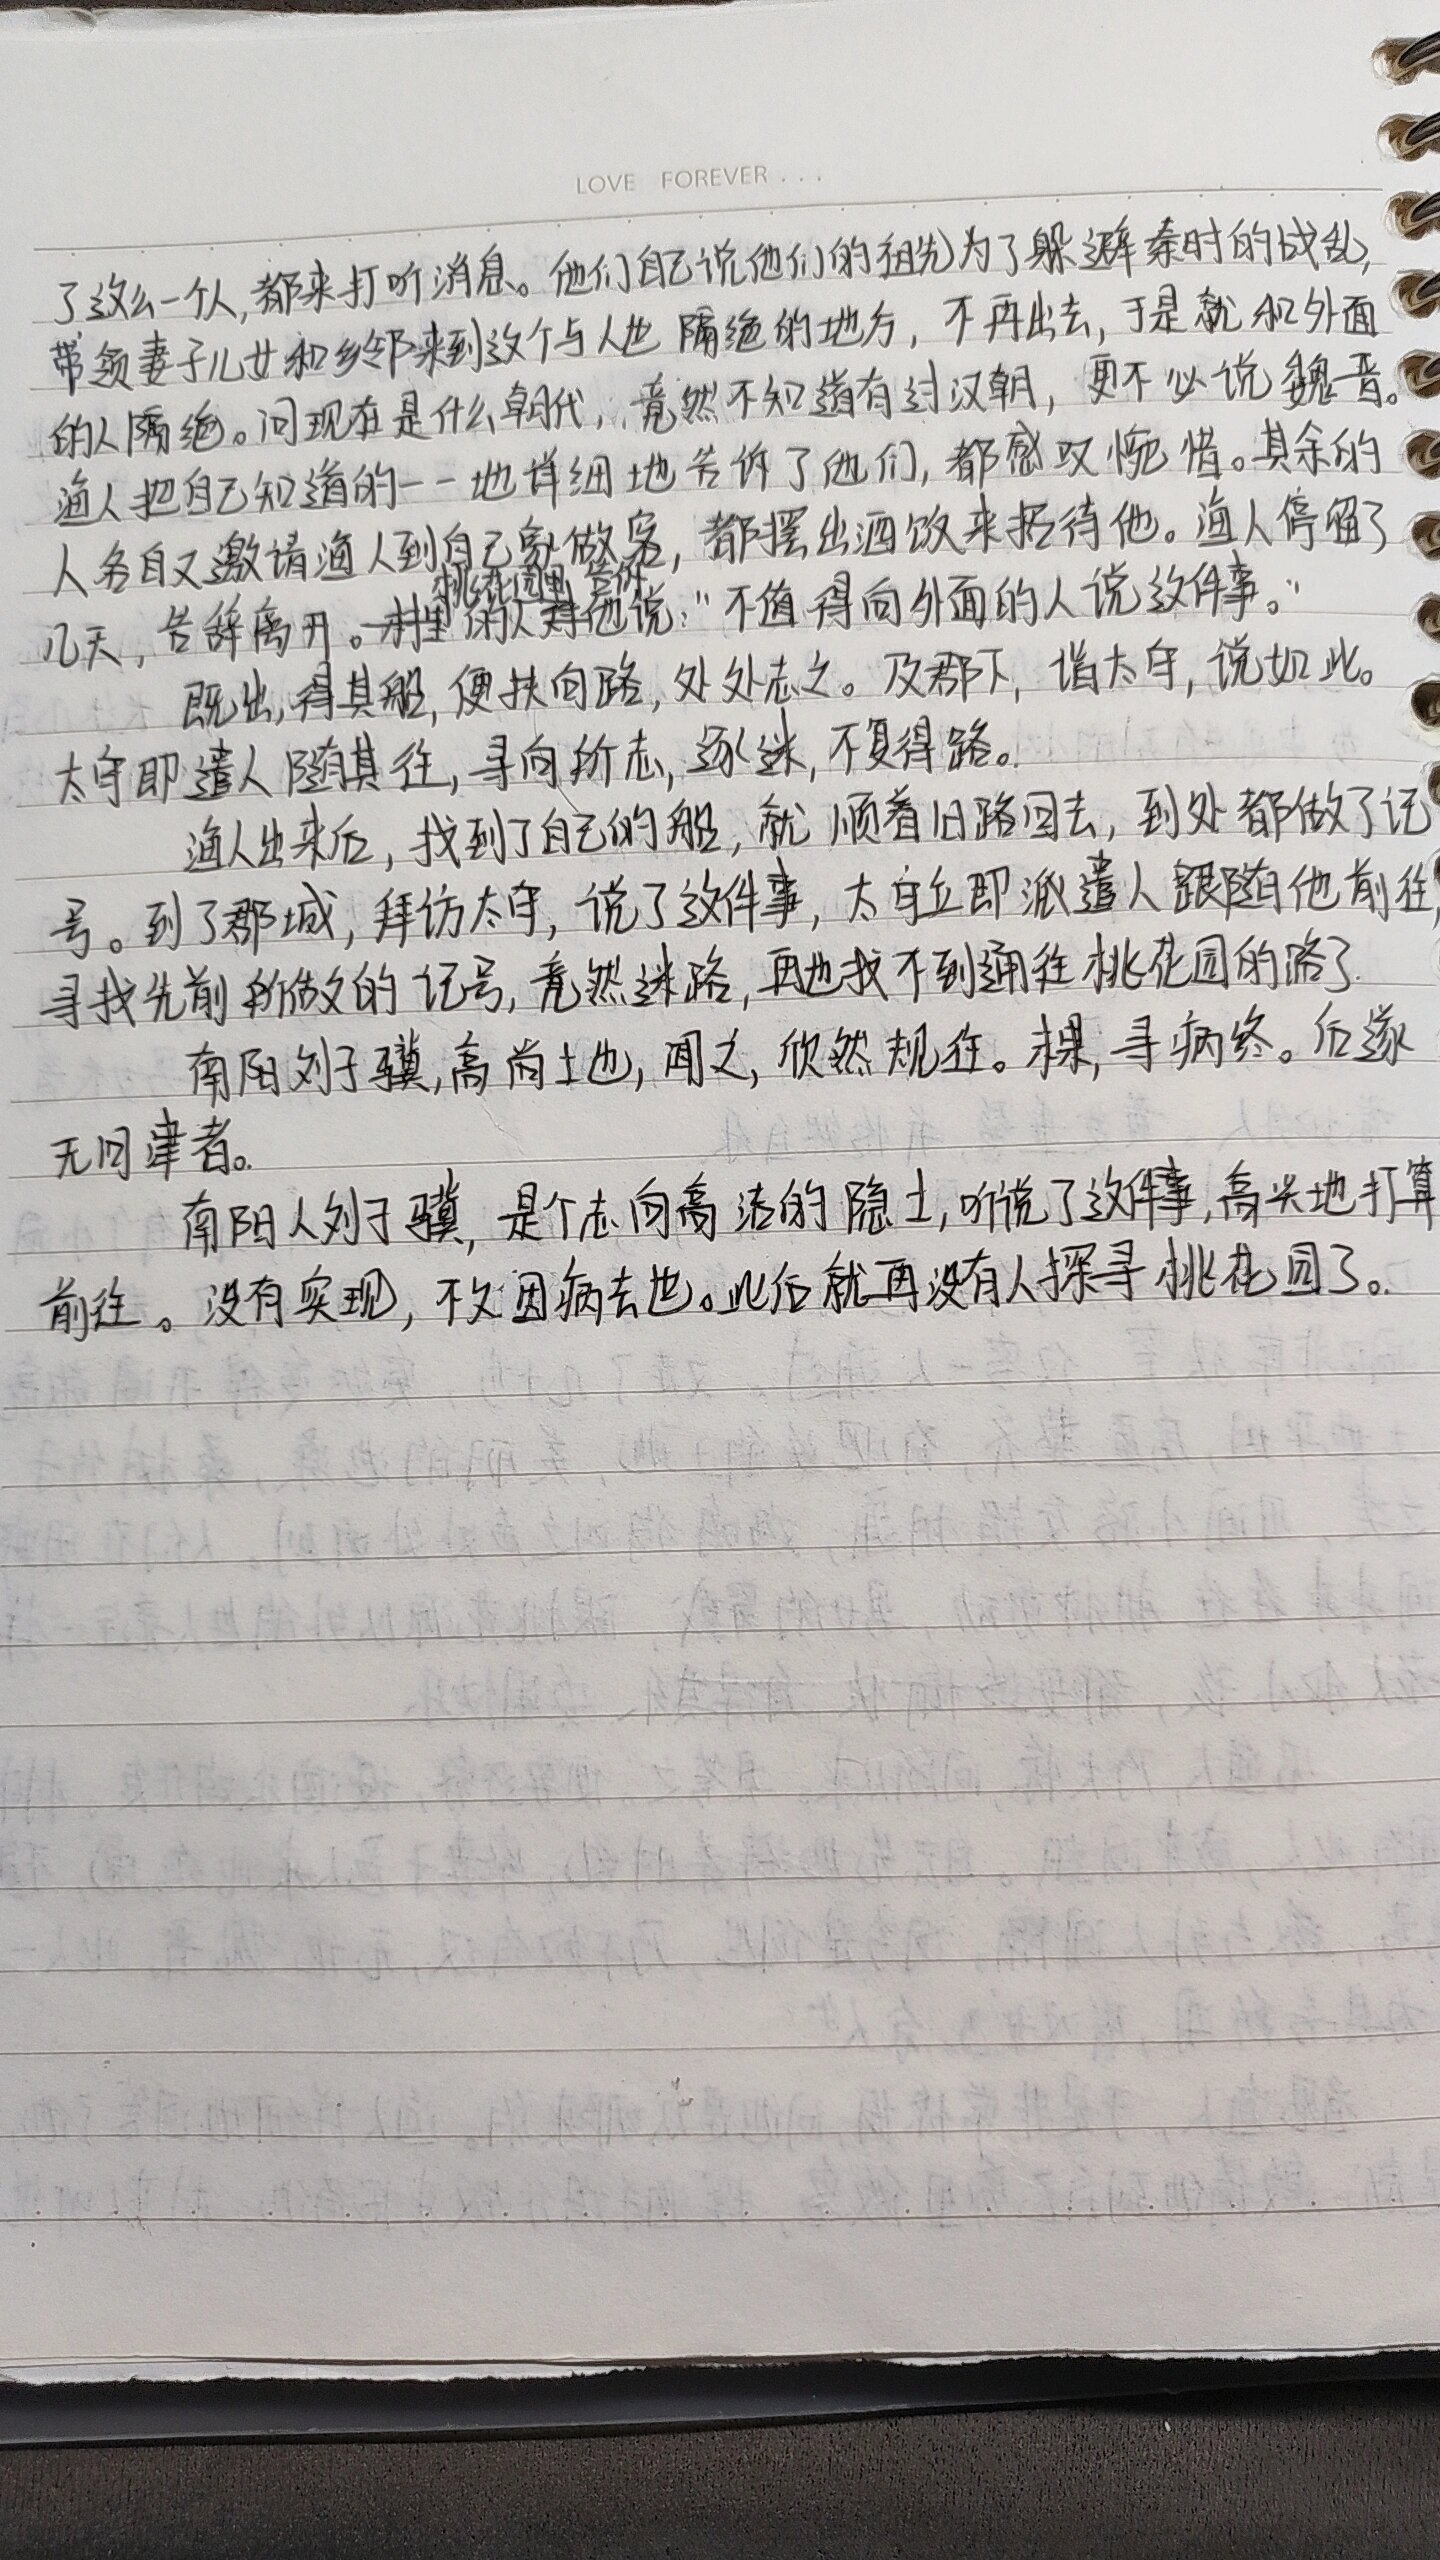 LOVE FOREVER...
了这么一个人,都来打听消息。他们自己说他们的祖先为了躲避秦时的战乱,
带领妻子儿女和乡邻来到这个与人世隔绝的地方,不再出去,于是就和外面
的人隔绝。问现在是什么朝代,竟然不知道有过汉朝,更不必说魏晋。
渔人把自己知道的一一地详细地告诉了他们,都感叹惋惜。其余的
人各自又邀请渔人到自己家做客,都摆出酒饭来招待他。渔人停留了
桃花园里 告诉
几天,告辞离开。村里的人对他说:"不值得向外面的人说这件事。"
既出,得其船,便扶向路,处处志之。及郡下,诣太守,说如此。
太守即遣人随其往,寻向所志,遂迷,不复得路。
渔人出来后,找到了自己的船,就顺着旧路回去,到处都做了记
号。到了郡城,拜访太守,说了这件事,太守立即派遣人跟随他前往,
寻找先前所做的记号,竟然迷路,再也找不到通往桃花园的路了.
南阳刘子骥,高尚士也,闻之,欣然规往。未果,寻病终。后遂
无问津者。
南阳人刘子骥,是个志向高洁的隐士,听说了这件事,高兴地打算
前往。没有实现,不久因病去世。此后就再没有人探寻桃花园了。